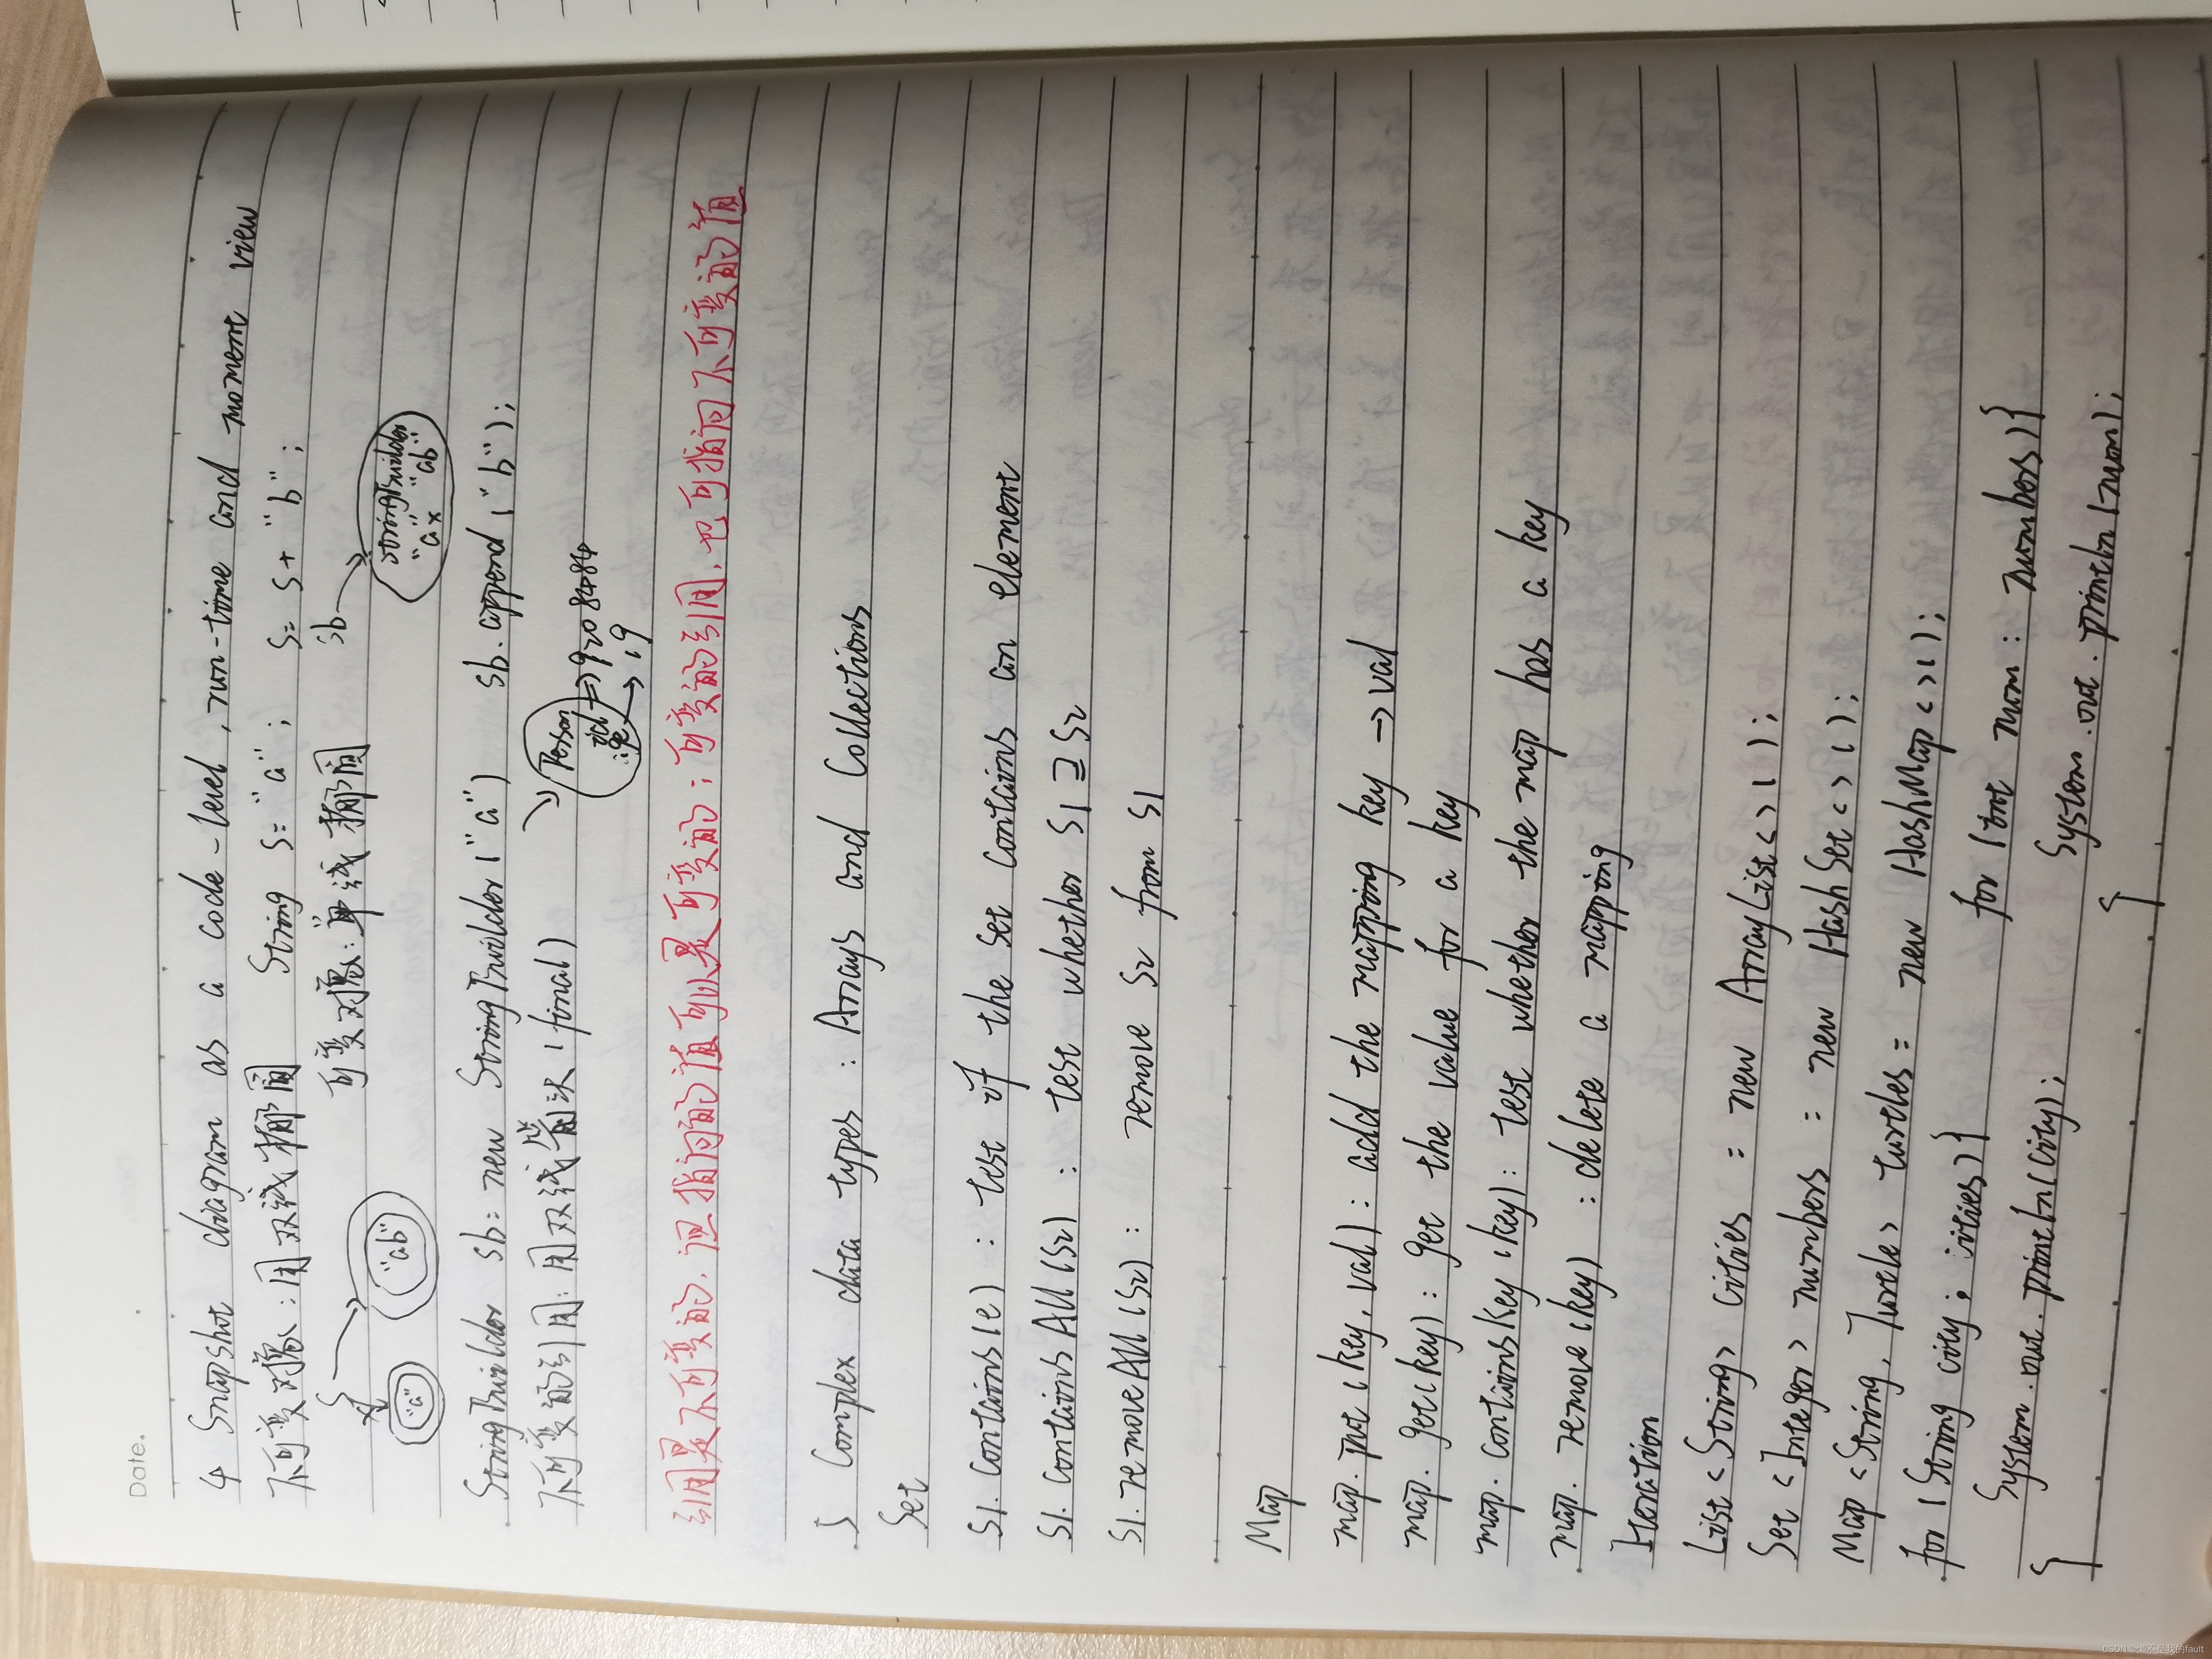 Date.
4 Snapshot diagram as a code-level, run-time and moment view
不可变对象:用双线椭圆 String s="a"; s= s+"b";
可变对象:单线椭圆 sb
s "a" "ab" StringBuilder "a" "ab"
StringBuilder sb= new StringBuilder("a") sb.append("b");
不可变的引用:用双线箭头(final)
Person id 920
引用是不可变的,但指向的值可以是可变的;可变的引用,也可指向不可变的值
5 Complex data types: Arrays and Collections
Set
s1.contains(e) : test if the set contains an element
s1.containsAll(s2) : test whether s1⊇s2
s1.removeAll(s2): remove s2 from s1
Map
map.put(key,val): add the mapping key→val
map.get(key): get the value for a key
map.containsKey(key): test whether the map has a key
map.remove(key) : delete a mapping
Iteration
List<String> cities = new ArrayList<>();
Set<Integer> numbers = new HashSet<>();
Map<String, Turtle> turtles= new HashMap<>();
for(String city: cities){ for(int num: numbers){
System.out.println(city); System.out.println(num);
} }
CSDN